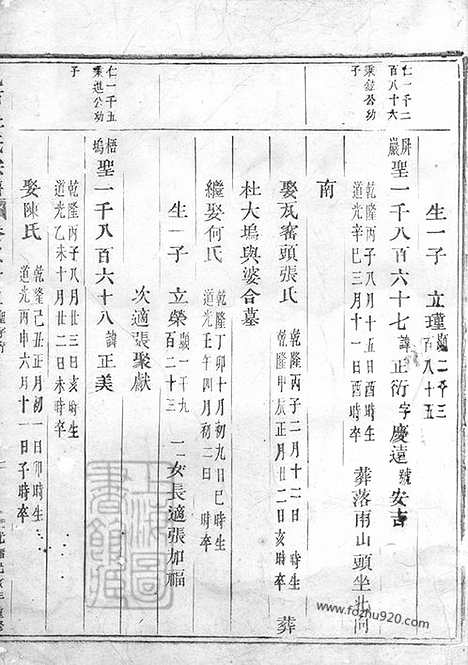 仁一千二
百八十六
秉鉞公功
子
生一子 立瑾 巔二千三
百八十五
屏巖 聖一千八百六十七 諱正衍字慶遠 號安吉
乾隆丙子八月十五日酉時生
道光辛巳三月十八日酉時卒
葬落雨山頭坐北向
南
娶瓦窰頭張氏
乾隆丙子二月十二日 時生
乾隆甲辰正月廿二日亥時卒
葬
杜大塢與婆合墓
繼娶何氏
乾隆丁卯十月初九日巳時生
道光壬午四月初二日 時卒
生一子 立榮
百二十三
二女長適張加福
次適張聚獻
仁一千五
秉進公功
子
梧塢 聖一千八百六十八 諱正美
乾隆丙子八月廿三日亥時生
道光乙未十月廿二日未時卒
娶陳氏
乾隆己丑正月初一日卯時生
道光丙申六月十一日子時卒
上海圖書館藏
www.fozhu920.com